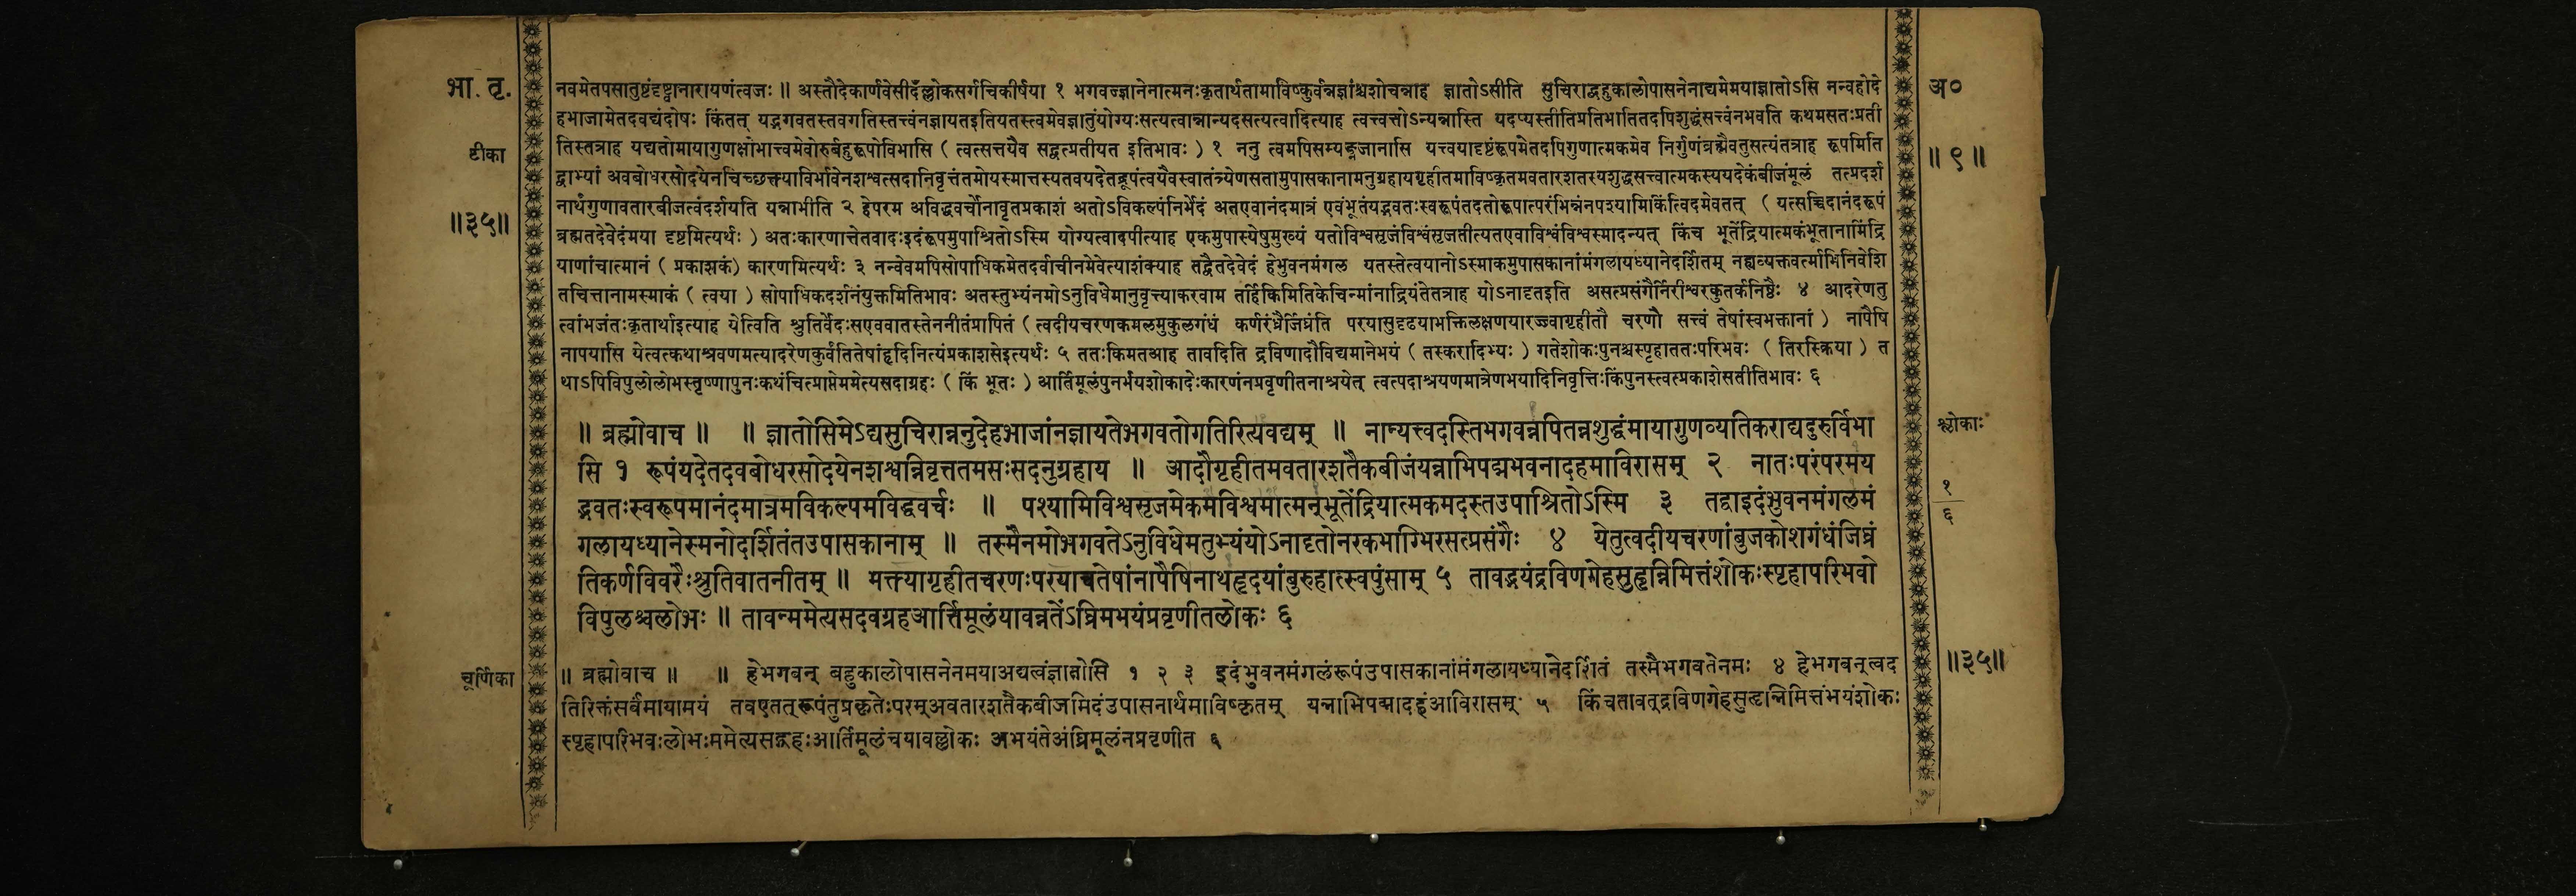 भा. तृ.
टीका
॥३५॥
नवमेतपसातुष्टंदृष्ट्वानारायणंत्वजः ॥ अस्तौदेकार्णवेसीदँल्लोकसर्गचिकीर्षया १ भगवज्ज्ञानेनात्मनःकृतार्थतामाविष्कुर्वन्नज्ञांश्चशोचन्नाह ज्ञातोऽसीति सुचिराद्बहुकालोपासनेनाद्यमेमयाज्ञातोऽसि नन्वहोदे
हभाजामेतदवद्यंदोषः किंतत् यद्भगवतस्तवगतिस्तत्त्वंनज्ञायतइतियतस्त्वमेवज्ञातुंयोग्यःसत्यत्वान्नान्यदसत्यत्वादित्याह त्वत्त्वत्तोऽन्यन्नास्ति यदप्यस्तीतिप्रतिभातितदपिशुद्धंसत्त्वंनभवति कथमसतःप्रती
तिस्तत्राह यद्यतोमायागुणक्षोभात्त्वमेवोरुर्बहुरूपोविभासि ( त्वत्सत्तयैव सद्वत्प्रतीयत इतिभावः ) १ ननु त्वमपिसम्यङ्नजानासि यत्त्वयादृष्टंरूपमेतदपिगुणात्मकमेव निर्गुणंब्रह्मैवतुसत्यंतत्राह रूपमिति
द्वाभ्यां अवबोधरसोदयेनचिच्छक्त्याविर्भावेनशश्वत्सदानिवृत्तंतमोयस्मात्तस्यतवयदेतद्रूपंत्वयैवस्वातंत्र्येणसतामुपासकानामनुग्रहायगृहीतमाविष्कृतमवतारशतस्यशुद्धसत्त्वात्मकस्ययदेकंबीजंमूलं तत्प्रदर्श
नार्थंगुणावतारबीजत्वंदर्शयति यन्नाभीति २ हेपरम अविद्धवर्चोनावृतप्रकाशं अतोऽविकल्पंनिर्भेदं अतएवानंदमात्रं एवंभूतंयद्भवतःस्वरूपंतदतोरूपात्परंभिन्नंनपश्यामिकिंत्विदमेवतत् ( यत्सच्चिदानंदरूपं
ब्रह्मतदेवेदंमया दृष्टमित्यर्थः ) अतःकारणात्तेतवादःइदंरूपमुपाश्रितोऽस्मि योग्यत्वादपीत्याह एकमुपास्येषुमुख्यं यतोविश्वसृजंविश्वंसृजतीत्यतएवाविश्वंविश्वस्मादन्यत् किंच भूतेंद्रियात्मकंभूतानामिंद्रि
याणांचात्मानं ( प्रकाशकं) कारणमित्यर्थः ३ नन्वेवमपिसोपाधिकमेतदर्वाचीनमेवेत्याशंक्याह तद्वैतदेवेदं हेभुवनमंगल यतस्तेत्वयानोऽस्माकमुपासकानांमंगलायध्यानेदर्शितम् नह्यव्यक्तवर्त्माभिनिवेशि
तचित्तानामस्माकं ( त्वया ) सोपाधिकदर्शनंयुक्तमितिभावः अतस्तुभ्यंनमोऽनुविधेमानुवृत्त्याकरवाम तर्हिकिमितिकेचिन्मांनाद्रियंतेतत्राह योऽनादृतइति असत्प्रसंगैर्निरीश्वरकुतर्कनिष्ठैः ४ आदरेणतु
त्वांभजंतःकृतार्थाइत्याह येत्विति श्रुतिर्वेदःसएववातस्तेननीतंप्रापितं ( त्वदीयचरणकमलमुकुलगंधं कर्णरंध्रैर्जिघ्रंति परयासुदृढयाभक्तिलक्षणयारज्ज्वागृहीतौ चरणौ सत्त्वं तेषांस्वभक्तानां ) नापैषि
नापयासि येत्वत्कथाश्रवणमत्यादरेणकुर्वंतितेषांहृदिनित्यंप्रकाशसेइत्यर्थः ५ ततःकिमतआह तावदिति द्रविणादौविद्यमानेभयं ( तस्करादिभ्यः ) गतेशोकःपुनश्चस्पृहाततःपरिभवः ( तिरस्क्रिया ) त
थाऽपिविपुलोलोभस्तृष्णापुनःकथंचित्प्राप्तेममेत्यसदाग्रहः ( किं भूतः ) आर्तिमूलंपुनर्भयशोकादेःकारणंनप्रवृणीतनाश्रयेत् त्वत्पदाश्रयणमात्रेणभयादिनिवृत्तिःकिंपुनस्त्वत्प्रकाशेसतीतिभावः ६
॥ ब्रह्मोवाच ॥ ॥ ज्ञातोसिमेऽद्यसुचिरान्ननुदेहभाजांनज्ञायतेभगवतोगतिरित्यवद्यम् ॥ नान्यत्त्वदस्तिभगवन्नपितन्नशुद्धंमायागुणव्यतिकराद्यदुरुर्विभा
सि १ रूपंयदेतदवबोधरसोदयेनशश्वन्निवृत्ततमसःसदनुग्रहाय ॥ आदौगृहीतमवतारशतैकबीजंयन्नाभिपद्मभवनादहमाविरासम् २ नातःपरंपरमय
द्भवतःस्वरूपमानंदमात्रमविकल्पमविद्धवर्चः ॥ पश्यामिविश्वसृजमेकमविश्वमात्मन्भूतेंद्रियात्मकमदस्तउपाश्रितोऽस्मि ३ तद्वाइदंभुवनमंगलमं
गलायध्यानेस्मनोदर्शितंतउपासकानाम् ॥ तस्मैनमोभगवतेऽनुविधेमतुभ्यंयोऽनादृतोनरकभाग्भिरसत्प्रसंगैः ४ येतुत्वदीयचरणांबुजकोशगंधंजिघ्रं
तिकर्णविवरैःश्रुतिवातनीतम् ॥ भक्त्यागृहीतचरणःपरयाचतेषांनापैषिनाथहृदयांबुरुहात्स्वपुंसाम् ५ तावद्भयंद्रविणगेहसुहृन्निमित्तंशोकःस्पृहापरिभवो
विपुलश्चलोभः ॥ तावन्ममेत्यसदवग्रहआर्त्तिमूलंयावन्नतेंऽघ्रिमभयंप्रवृणीतलोकः ६
चूर्णिका
॥ ब्रह्मोवाच ॥ ॥ हेभगवन् बहुकालोपासनेनमयाअद्यत्वंज्ञातोसि १ २ ३ इदंभुवनमंगलंरूपंउपासकानांमंगलायध्यानेदर्शितं तस्मैभगवतेनमः ४ हेभगवन्त्वद
तिरिक्तंसर्वंमायामयं तवएतत्रूपंतुप्रकृतेःपरम्अवतारशतैकबीजमिदंउपासनार्थमाविष्कृतम् यन्नाभिपद्मादहंआविरासम् ५ किंचतावत्द्रविणगेहसुहृन्निमित्तंभयंशोकः
स्पृहापरिभवःलोभःममेत्यसद्ग्रहःआर्तिमूलंचयावल्लोकः अभयंतेअंघ्रिमूलंनप्रवृणीत ६
अ०
॥ ९ ॥
श्लोकाः
१
६
॥३५॥